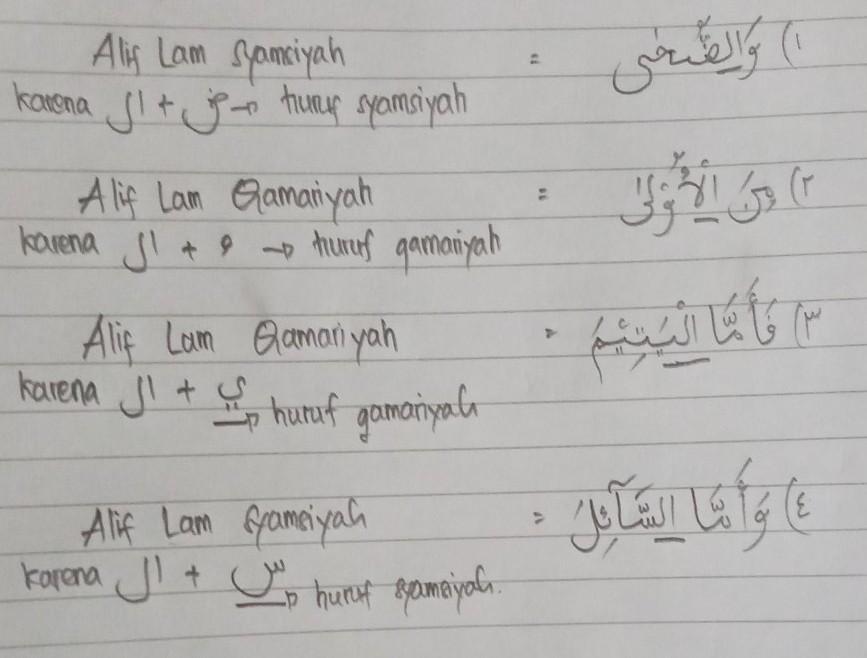 Alif Lam Syamsiyah = وَالضُّحٰى (١
karena ال + ض → huruf syamsiyah
Alif Lam Qamariyah = مِنَ الْأُوْلٰى (٢
karena ال + ء → huruf qamariyah
Alif Lam Qamariyah = فَأَمَّا الْيَتِيْمَ (٣
karena ال + ي → huruf qamariyah
Alif Lam Syamsiyah = وَأَمَّا السَّآئِلَ (٤
karena ال + س → huruf syamsiyah.